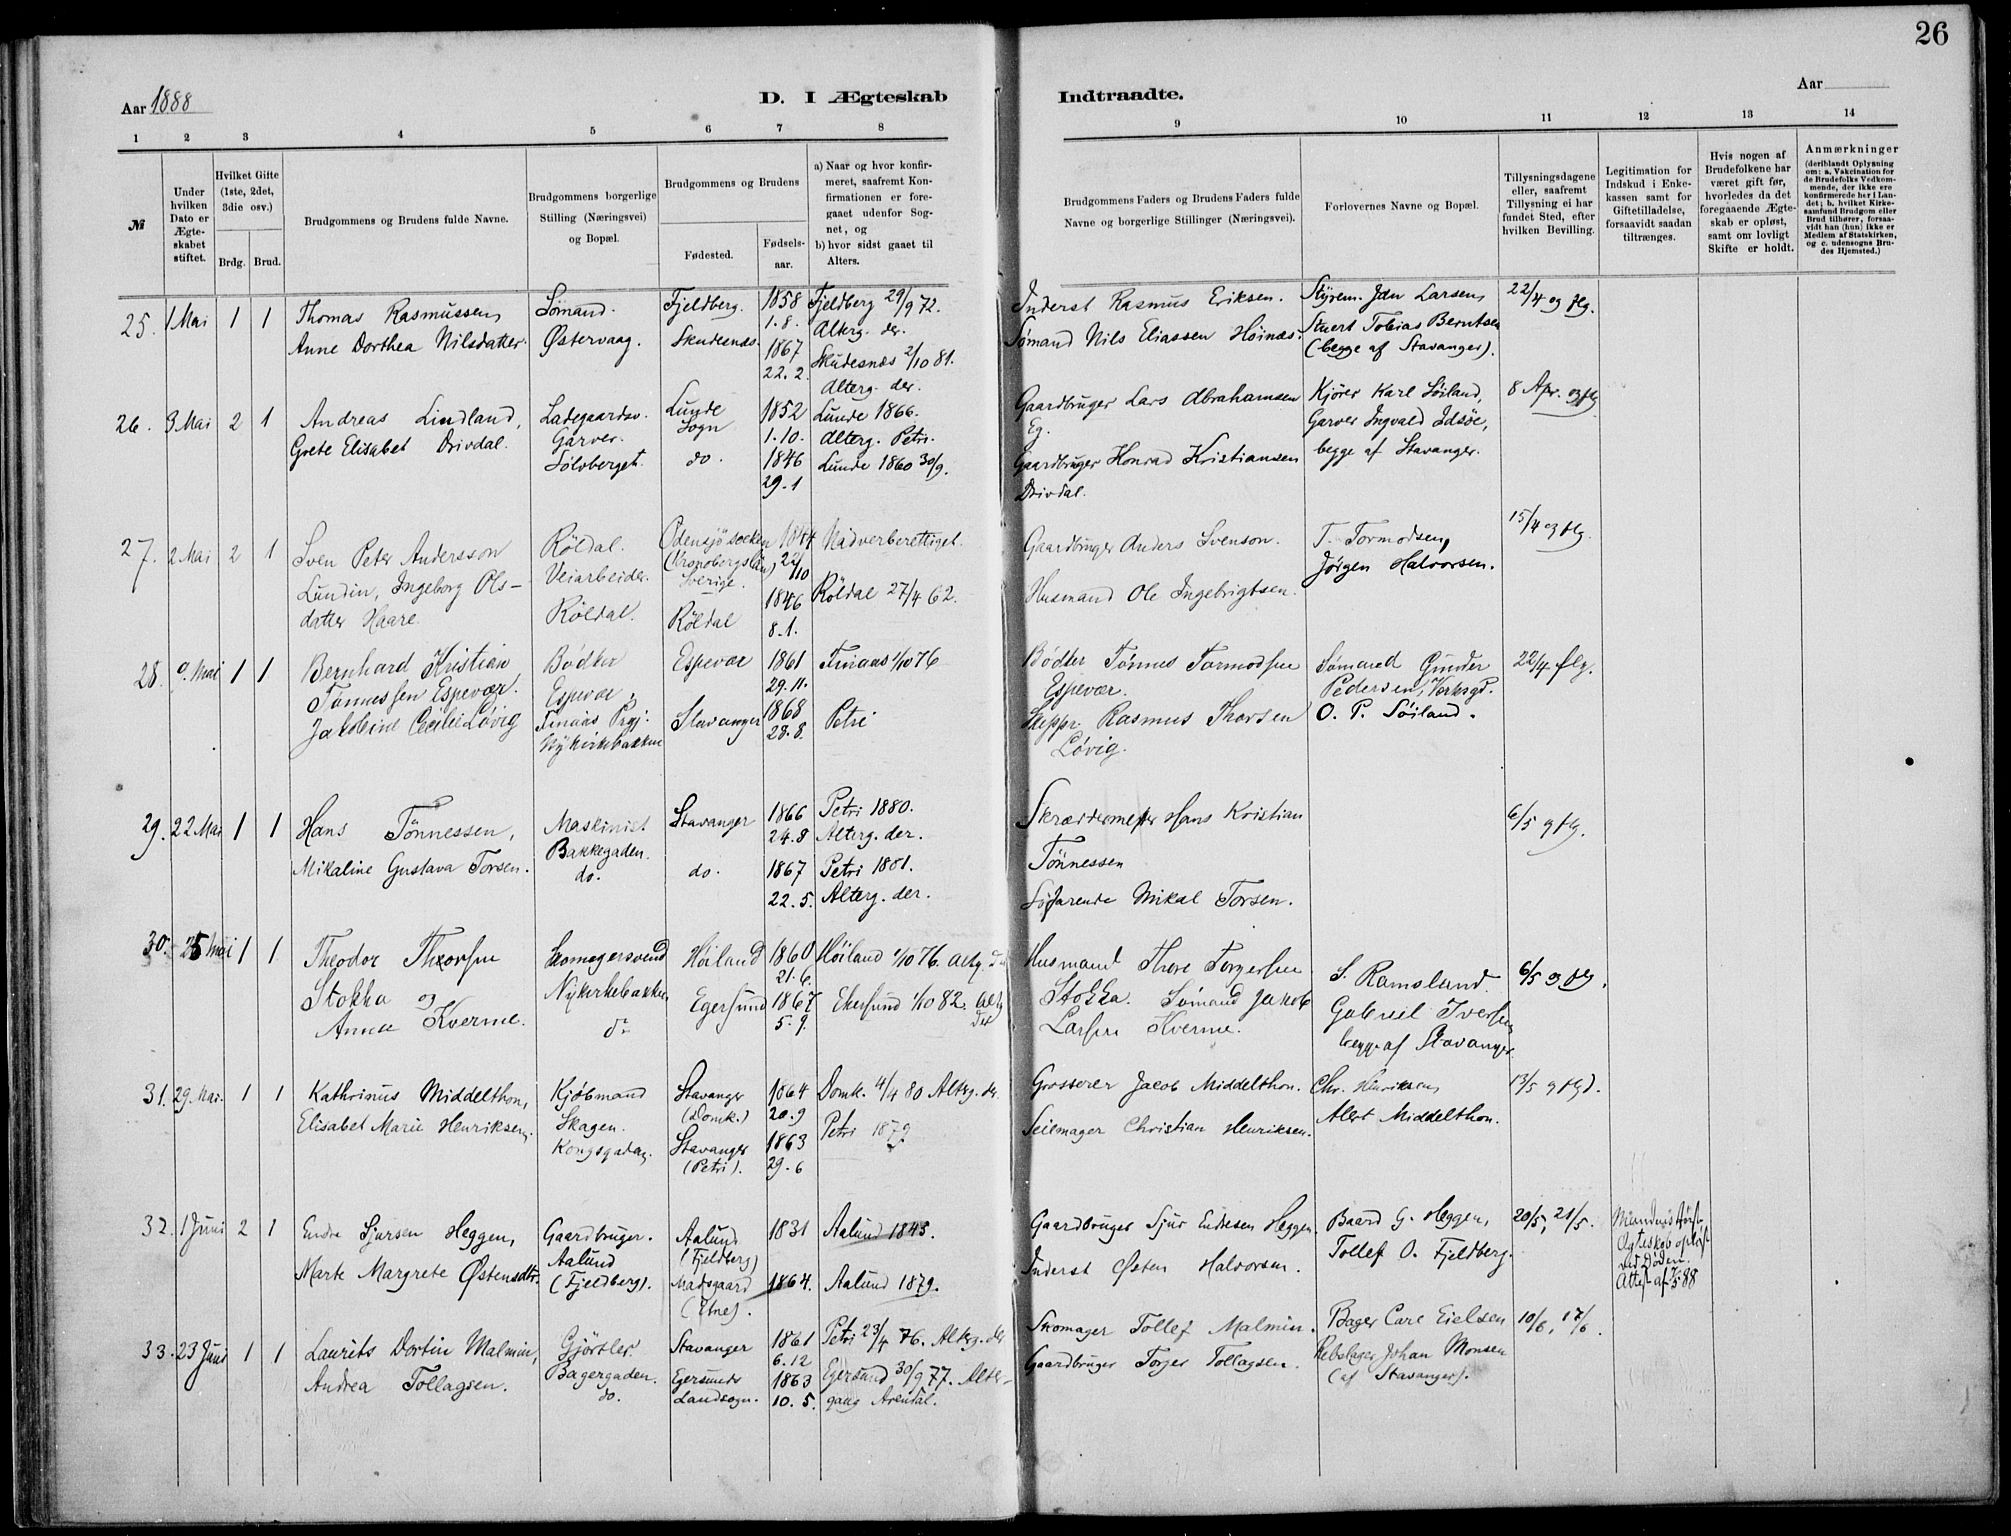 26
Aar 1888
D. I Ægteskab
Indtraadte.
Aar
1 2 3 4 5 6 7 8
9 10 11 12 13 14
№
Under hvilken Dato er Ægteskabet stiftet.
Hvilket Gifte (1ste, 2det, 3die osv.)
Brdg. Brud.
Brudgommens og Brudens fulde Navne.
Brudgommens borgerlige Stilling (Næringsvei) og Bopæl.
Brudgommens og Brudens
Fødested.
Fødselsaar.
a) Naar og hvor konfirmeret, saafremt Konfirmationen er foregaaet udenfor Sognet, og
b) hvor sidst gaaet til Alters.
Brudgommens Faders og Brudens Faders fulde Navne og borgerlige Stillinger (Næringsvei).
Forlovernes Navne og Bopæl.
Tillysningsdagene eller, saafremt Tillysning ei har fundet Sted, efter hvilken Bevilling.
Legitimation for Indskud i Enkekassen samt for Giftetilladelse, forsaavidt saadan tiltrænges.
Hvis nogen af Brudefolkene har været gift før, hvorledes da det foregaaende Ægteskab er opløst, samt om lovligt Skifte er holdt.
Anmærkninger
(deriblandt Oplysning om: a. Vakcination for de Brudefolks Vedkommende, der ikke ere konfirmerede her i Landet; b. hvilket Kirkesamfund Brudgom eller Brud tilhører, forsaavidt han (hun) ikke er Medlem af Statskirken, og c. udensogns Brudes Hjemsted.)
25. 1 Mai 1 1
Thomas Rasmussen,
Anne Dorthea Nilsdatter.
Sømand.
Østervaag.
Fjeldberg.
Skudesnæs.
1858
1.8.
1867
22.2.
Fjeldberg 29/9 72.
Alterg. der.
Skudesnæs 2/10 81.
Alterg. der.
Inderst Rasmus Eriksen.
Sømand Nils Eliassen Høinæs.
Styrem. Jdn Larsen,
Stuert Tobias Berntsen
(begge af Stavanger).
22/4 og flg.
26. 3 Mai 2 1
Andreas Lindland,
Grete Elisabet Drivdal.
Ladegaardsv.
Garver.
Sølvberget.
Lunde
Sogn
do.
1852
1.10.
1846
29.1
Lunde 1866.
Alterg. Petri.
Lunde 1860 30/9.
Gaardbruger Lars Abrahamsen
Eg.
Gaardbruger Honrad Kristiansen
Drivdal.
Kjører Karl Søiland,
Garver Ingvald Idsøe,
begge af Stavanger.
8 Apr. og flg
27. 2 Mai 2 1
Sven Peter Andersson
Lundin, Ingeborg Ols-
datter Haare.
Røldal.
Veiarbeider.
Røldal.
Odensjö socken
(Kronobergs län)
Sverige.
Røldal
1844
22/10
1846
8.1.
Nadverberettiget.
Røldal 27/4 62.
Gaardbruger Anders Svenson.
Husmand Ole Ingebrigtsen.
T. Tormodsen,
Jørgen Halvorsen.
15/4 og flg.
28. Mai 1 1
Bernhard Kristian
Tønnessen Espevær.
Jakobine Cecilie Løvig
Bødker
Espevær,
Finaas Prgj.
Nykirkebakken
Espevær
Stavanger
1861
29.11.
1868
28.8.
Finaas 1/10 76
Petri
Bødker Tønnes Tormodsen
Espevær.
Skippr. Rasmus Thorsen
Løvig.
Sømand Gunder
Pedersen, Verksgd.
O. P. Søiland.
22/4 flg.
29. 22 Mai 1 1
Hans Tönnessen,
Mikaline Gustava Torsen.
Maskinist
Bakkegaden.
do.
Stavanger
do.
1866
24.8
1867
22.5.
Petri 1880.
Alterg. der.
Petri 1881.
Alterg. der.
Skræddermester Hans Kristian
Tönnessen
Söfarende Mikal Torsen.
6/5 og flg.
30. 25 Mai 1 1
Theodor Thorsen
Stokka og
Anna Kverme.
Skomagersvend
Nykirkebakken,
do
Høiland
Egersund
1860
21.6.
1867
5.9.
Høiland 1/10 76. Altg. der
Ekersund 1/10 82. Altg
der
Husmand Thore Torgersen
Stokka. Sømand Jakob
Larsen Kverme.
S. Ramsland.
Gabriel Iversen
begge af Stavanger.
6/5 og flg.
31. 29 Mai. 1 1
Kathrinus Middelthon,
Elisabet Marie Henriksen.
Kjøbmand
Skagen.
Kongsgaden.
Stavanger
(Domk.)
Stavanger
(Petri).
1864
20.9
1863
29.6
Domk. 4/4 80 Alterg. der.
Petri 1879
Grosserer Jacob Middelthon.
Seilmager Christian Henriksen.
Chr. Henriksen,
Alert Middelthon.
13/5 og flgd.
32. 1 Juni 2 1
Endre Sjursen Heggen,
Marte Margrete Østensdtr.
Gaardbruger.
Aalund
(Fjeldberg).
Aalund
(Fjeldberg)
Madsgaard
(Etne).
1831
1864.
Aalund 1843.
Aalund 1879.
Gaardbruger Sjur Endresen Heggen
Inderst Østen Halvorsen.
Baard G. Heggen,
Tollef O. Fjeldberg.
20/5, 21/5.
Mandens først
Ægteskab opløst
ved Døden.
Attest af 1/5 88
33. 23 Juni 1 1
Laurits Dortin Malmin,
Andrea Tollagsen.
Gjørtler
Bagergaden.
do.
Stavanger
Egersunds
Landsogn.
1861
6.12
1863
10.5.
Petri 23/4 76. Alterg. der
Egersund 30/9 77. Alter-
gang Arendal.
Skomager Tollef Malmin.
Gaardbruger Torger Tollagsen.
Bager Carl Eielsen
Rebslager Johan Monsen
(af Stavanger).
10/6, 17/6.